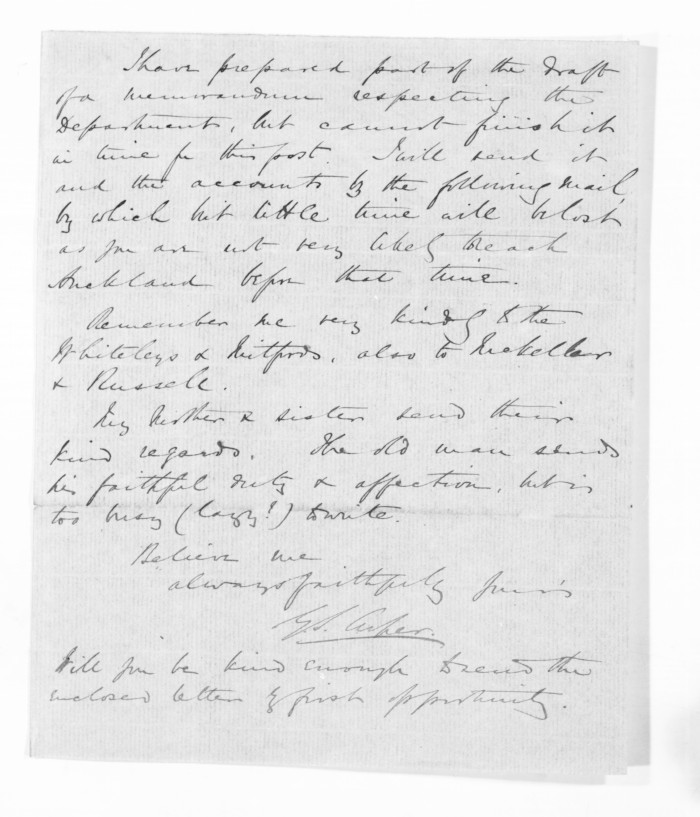 I have prepared part of the draft
of a memorandum respecting the
Department, but cannot finish it
in time for this post. I will send it
and the accounts by the following mail,
by which but little time will be lost
as you are not very likely to reach
Auckland before that time.
Remember me very kindly to the
Whiteleys & Mitfords, also to McKellar
& Russell.
My Mother & sister send their
kind regards. The old man sends
his faithful duty & affection, but is
too busy (lazy?) to write.
Believe me
always faithfully yours
G S. Cooper.
Will you be kind enough to send the
enclosed letter by first opportunity.